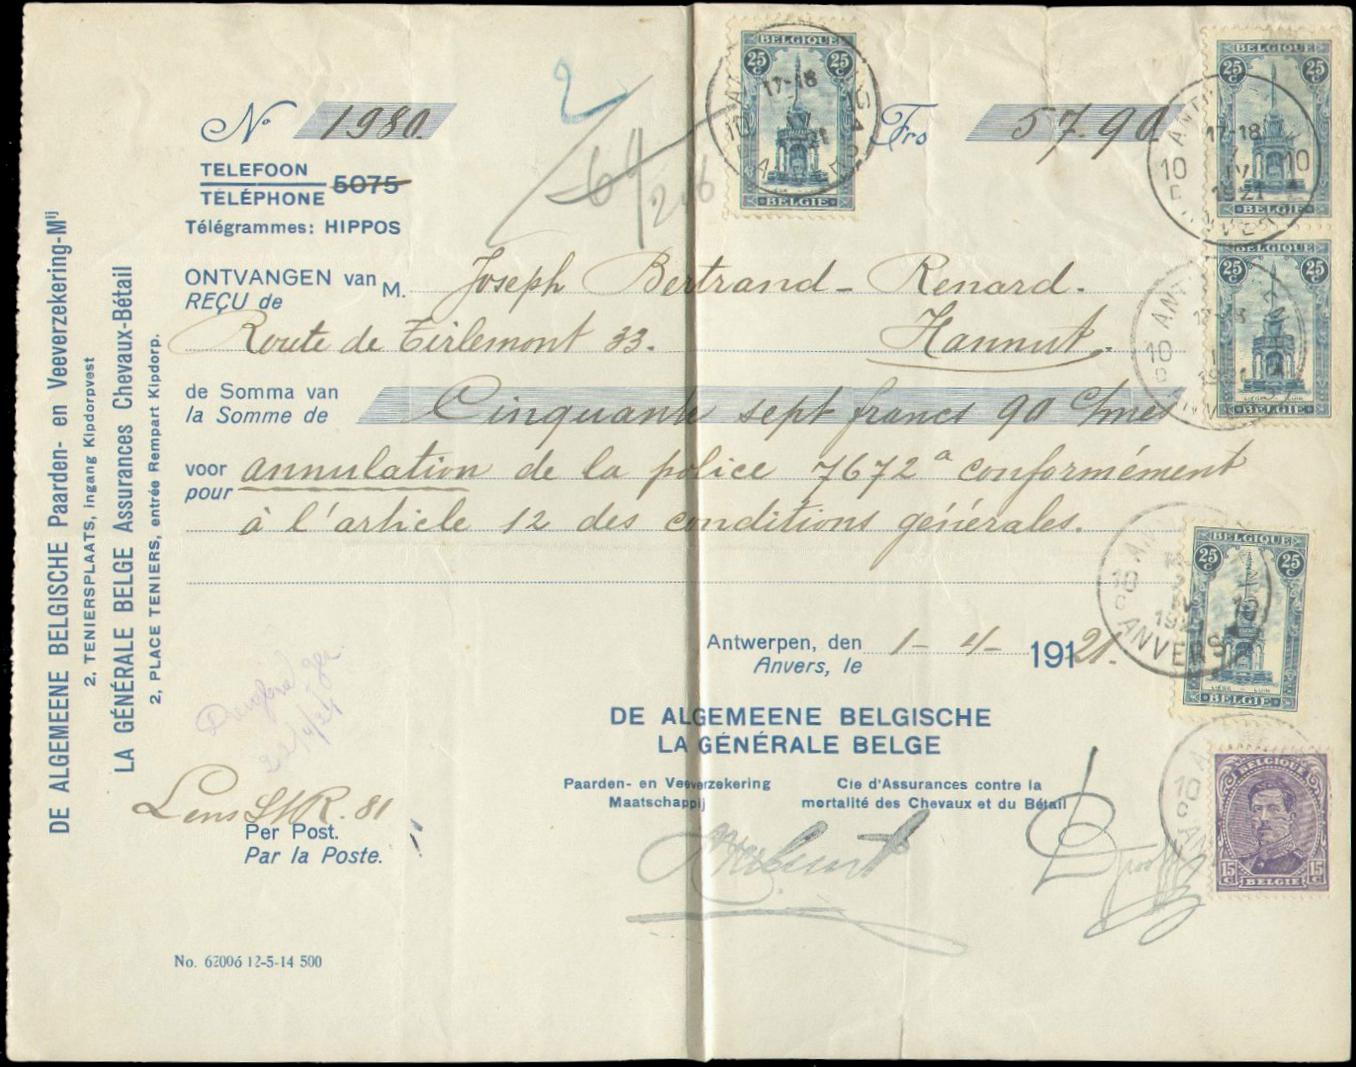 N° 1980.
Frs 57.90
TELEFOON
TÉLÉPHONE 5075
Télégrammes: HIPPOS
ONTVANGEN van M. Joseph Bertrand - Renard.
REÇU de
Route de Tirlemont 33. Hannut.
de Somma van
la Somme de Cinquante sept francs 90 c/mes
voor annulation de la police 7672ª conformément
pour
à l'article 12 des conditions générales.
Antwerpen, den 1-4-
Anvers, le 191 21.
DE ALGEMEENE BELGISCHE
LA GÉNÉRALE BELGE
Paarden- en Veeverzekering
Maatschappij
Cie d'Assurances contre la
mortalité des Chevaux et du Bétail
Per Post.
Par la Poste.
No. 62006 12-5-14 500
DE ALGEMEENE BELGISCHE Paarden- en Veeverzekering-Mij
2, TENIERSPLAATS, ingang Kipdorpvest
LA GÉNÉRALE BELGE Assurances Chevaux-Bétail
2, PLACE TENIERS, entrée Rempart Kipdorp.
BELGIQUE
25 C 25 C
BELGIE
17-18
10
BELGIQUE
25 C 25 C
BELGIE
17-18
10 10
IV
1921
ANVERS
BELGIQUE
25 C 25 C
BELGIE
10
BELGIQUE
25 C 25 C
BELGIE
10
ANVERS
BELGIQUE
15 C 15 C
BELGIE
10
2
64
206